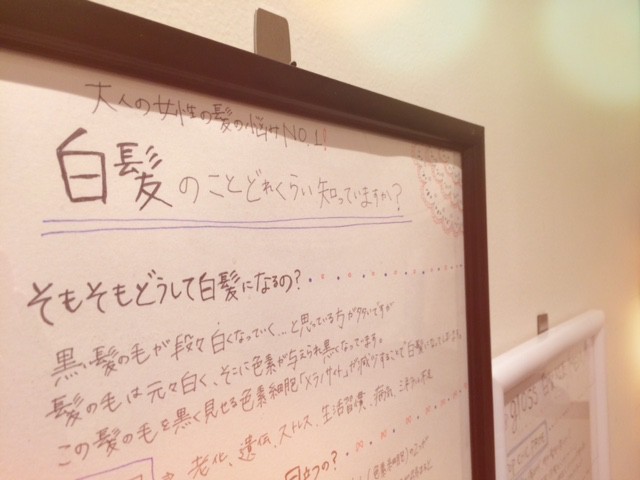 大人の女性の髪の悩みNO.1!
白髪のことどれくらい知っていますか?
そもそもどうして白髪になるの?
黒い髪の毛が段々白くなっていく…と思っている方が多いですが
髪の毛は元々白く、そこに色素が与えられ黒くなっています。
この髪の毛を黒く見せる色素細胞「メラノサイト」が減少することで白髪
老化、遺伝、ストレス、生活習慣、病気、ミネラル不足
目立つの?
gloss